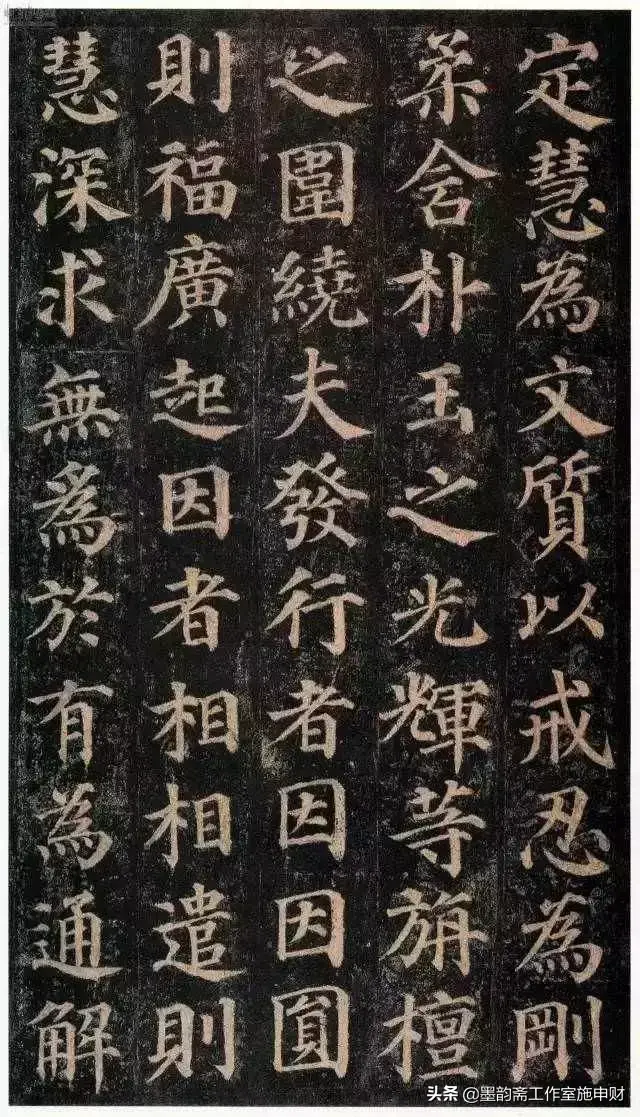 定慧為文質以戒忍為剛
柔含朴玉之光輝等旃檀
之圍繞夫發行者因因圓
則福廣起因者相相遣則
慧深求無為於有為通解
头条 @墨韵斋工作室施申财